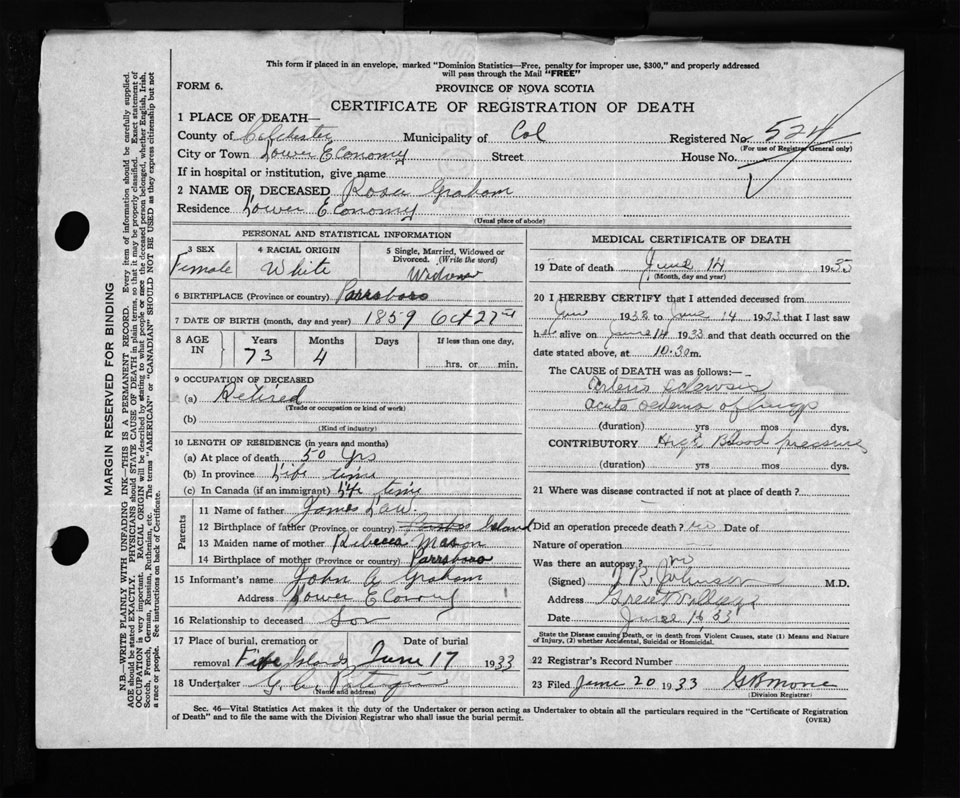 This form if placed in an envelope, marked "Dominion Statistics—Free, penalty for improper use, $300," and properly addressed
will pass through the Mail "FREE"
FORM 6.
PROVINCE OF NOVA SCOTIA
CERTIFICATE OF REGISTRATION OF DEATH
1 PLACE OF DEATH—
County of Colchester Municipality of Col Registered No. 524
(For use of Registrar General only)
City or Town Lower Economy Street House No.
If in hospital or institution, give name
2 NAME OF DECEASED Rosa Graham
Residence Lower Economy
(Usual place of abode)
PERSONAL AND STATISTICAL INFORMATION
3 SEX 4 RACIAL ORIGIN 5 Single, Married, Widowed or
Divorced. (Write the word)
Female White Widow
6 BIRTHPLACE (Province or country) Parrsboro
7 DATE OF BIRTH (month, day and year) 1859 Oct 27
8 AGE IN Years Months Days If less than one day,
73 4 hrs. or min.
9 OCCUPATION OF DECEASED
(a) Retired
(Trade or occupation or kind of work)
(b)
(Kind of industry)
10 LENGTH OF RESIDENCE (in years and months)
(a) At place of death 50 yrs
(b) In province Life time
(c) In Canada (if an immigrant) Life time
Parents
11 Name of father James Law.
12 Birthplace of father (Province or country) Island
13 Maiden name of mother Rebecca Mason
14 Birthplace of mother (Province or country) Parrsboro
15 Informant's name John A Graham
Address Lower Economy
16 Relationship to deceased Son
17 Place of burial, cremation or Date of burial
removal Five Islands June 17 1933
18 Undertaker G. C.
(Name and address)
MEDICAL CERTIFICATE OF DEATH
19 Date of death June 14 1933
(Month, day and year)
20 I HEREBY CERTIFY that I attended deceased from
June 1933 to June 14 1933 that I last saw
h alive on June 14 1933 and that death occurred on the
date stated above, at 10.30 m.
The CAUSE of DEATH was as follows:—
Arterio Sclerosis
Acute oedema of lungs
(duration) yrs mos dys.
CONTRIBUTORY High Blood pressure
(duration) yrs mos dys.
21 Where was disease contracted if not at place of death?
Did an operation precede death? no Date of
Nature of operation
Was there an autopsy? no
(Signed) Johnson M.D.
Address Great Village
Date June 16 33
State the Disease causing Death, or in death from Violent Causes, state (1) Means and Nature
of Injury, (2) whether Accidental, Suicidal or Homicidal.
22 Registrar's Record Number
23 Filed June 20 1933 G B
(Division Registrar)
Sec. 46—Vital Statistics Act makes it the duty of the Undertaker or person acting as Undertaker to obtain all the particulars required in the "Certificate of Registration
of Death" and to file the same with the Division Registrar who shall issue the burial permit.
(OVER)
MARGIN RESERVED FOR BINDING
N.B.—WRITE PLAINLY WITH UNFADING INK—THIS IS A PERMANENT RECORD. Every item of information should be carefully supplied.
AGE should be stated EXACTLY. PHYSICIANS should STATE CAUSE OF DEATH in plain terms, so that it may be properly classified. Exact statement of
OCCUPATION is very important. RACIAL ORIGIN will be described by stating to what people or race the deceased person belonged, whether English, Irish,
Scotch, French, German, Russian, Ruthenian, etc. The terms "AMERICAN" or "CANADIAN" SHOULD NOT BE USED as they express citizenship but not
a race or people. See instructions on back of Certificate.